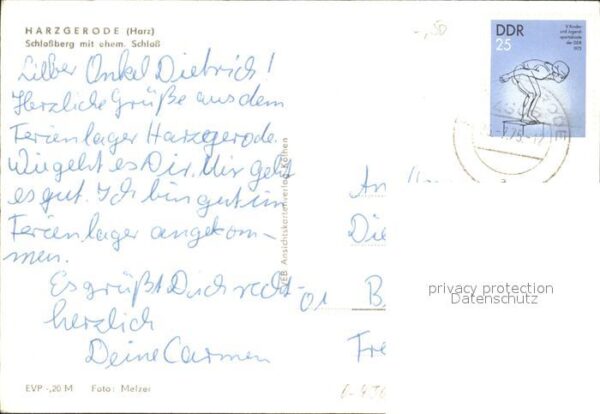 HARZGERODE (Harz)
Schloßberg mit ehem. Schloß
-,50
DDR
25
V. Kinder-
und Jugend-
spartakiade
der DDR
1975
Lieber Onkel Dietrich!
Herzliche Grüße aus dem
Ferienlager Harzgerode.
Wie geht es Dir. Mir geht
es gut. Ich bin gut im
Ferienlager angekom-
men.
Es grüßt Dich recht
herzlich
Deine Carmen
VEB Ansichtskartenverlag Köthen
An
Die
01 B
Fre
privacy protection
Datenschutz
EVP -,20 M Foto: Melzer